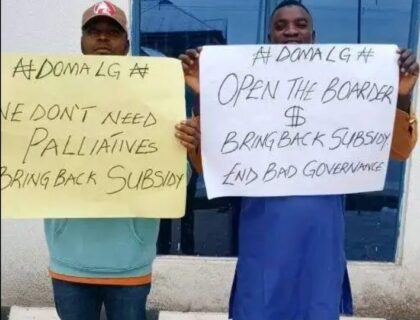 ₦ DOMA LG ₦
WE DON'T NEED
PALLIATIVES
BRING BACK SUBSIDY
₦ DOMA LG ₦
OPEN THE BOARDER
$
BRING BACK SUBSIDY.
END BAD GOVERNANCE